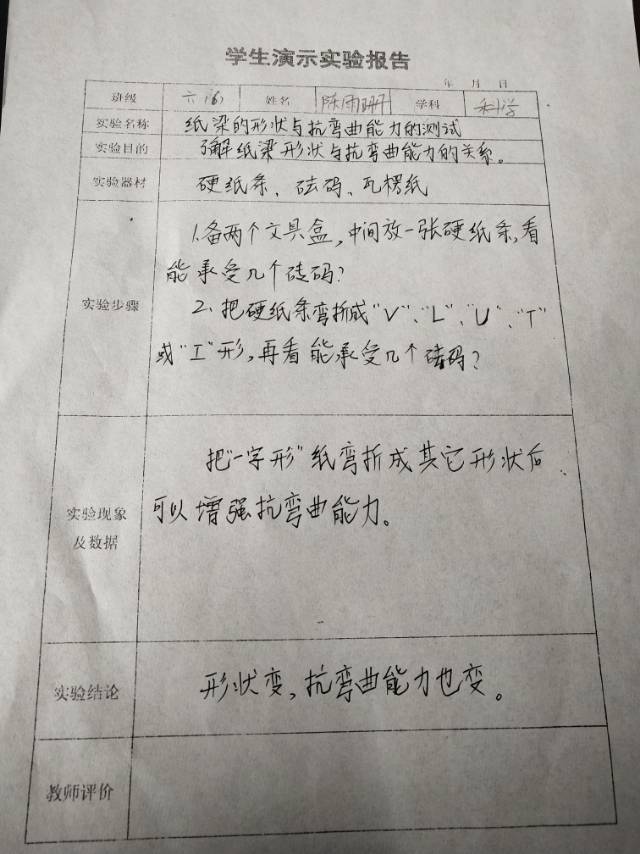 学生演示实验报告
年 月 日
班级 六(6) 姓名 陈雨珊 学科 科学
实验名称 纸梁的形状与抗弯曲能力的测试
实验目的 了解纸梁形状与抗弯曲能力的关系。
实验器材 硬纸条、砝码、瓦楞纸
实验步骤
1.备两个文具盒,中间放一张硬纸条,看
能承受几个砝码?
2、把硬纸条弯折成"V"、"L"、"U"、"T"
或"工"形,再看能承受几个砝码?
实验现象
及数据
把"一字形"纸弯折成其它形状后
可以增强抗弯曲能力。
实验结论 形状变,抗弯曲能力也变。
教师评价